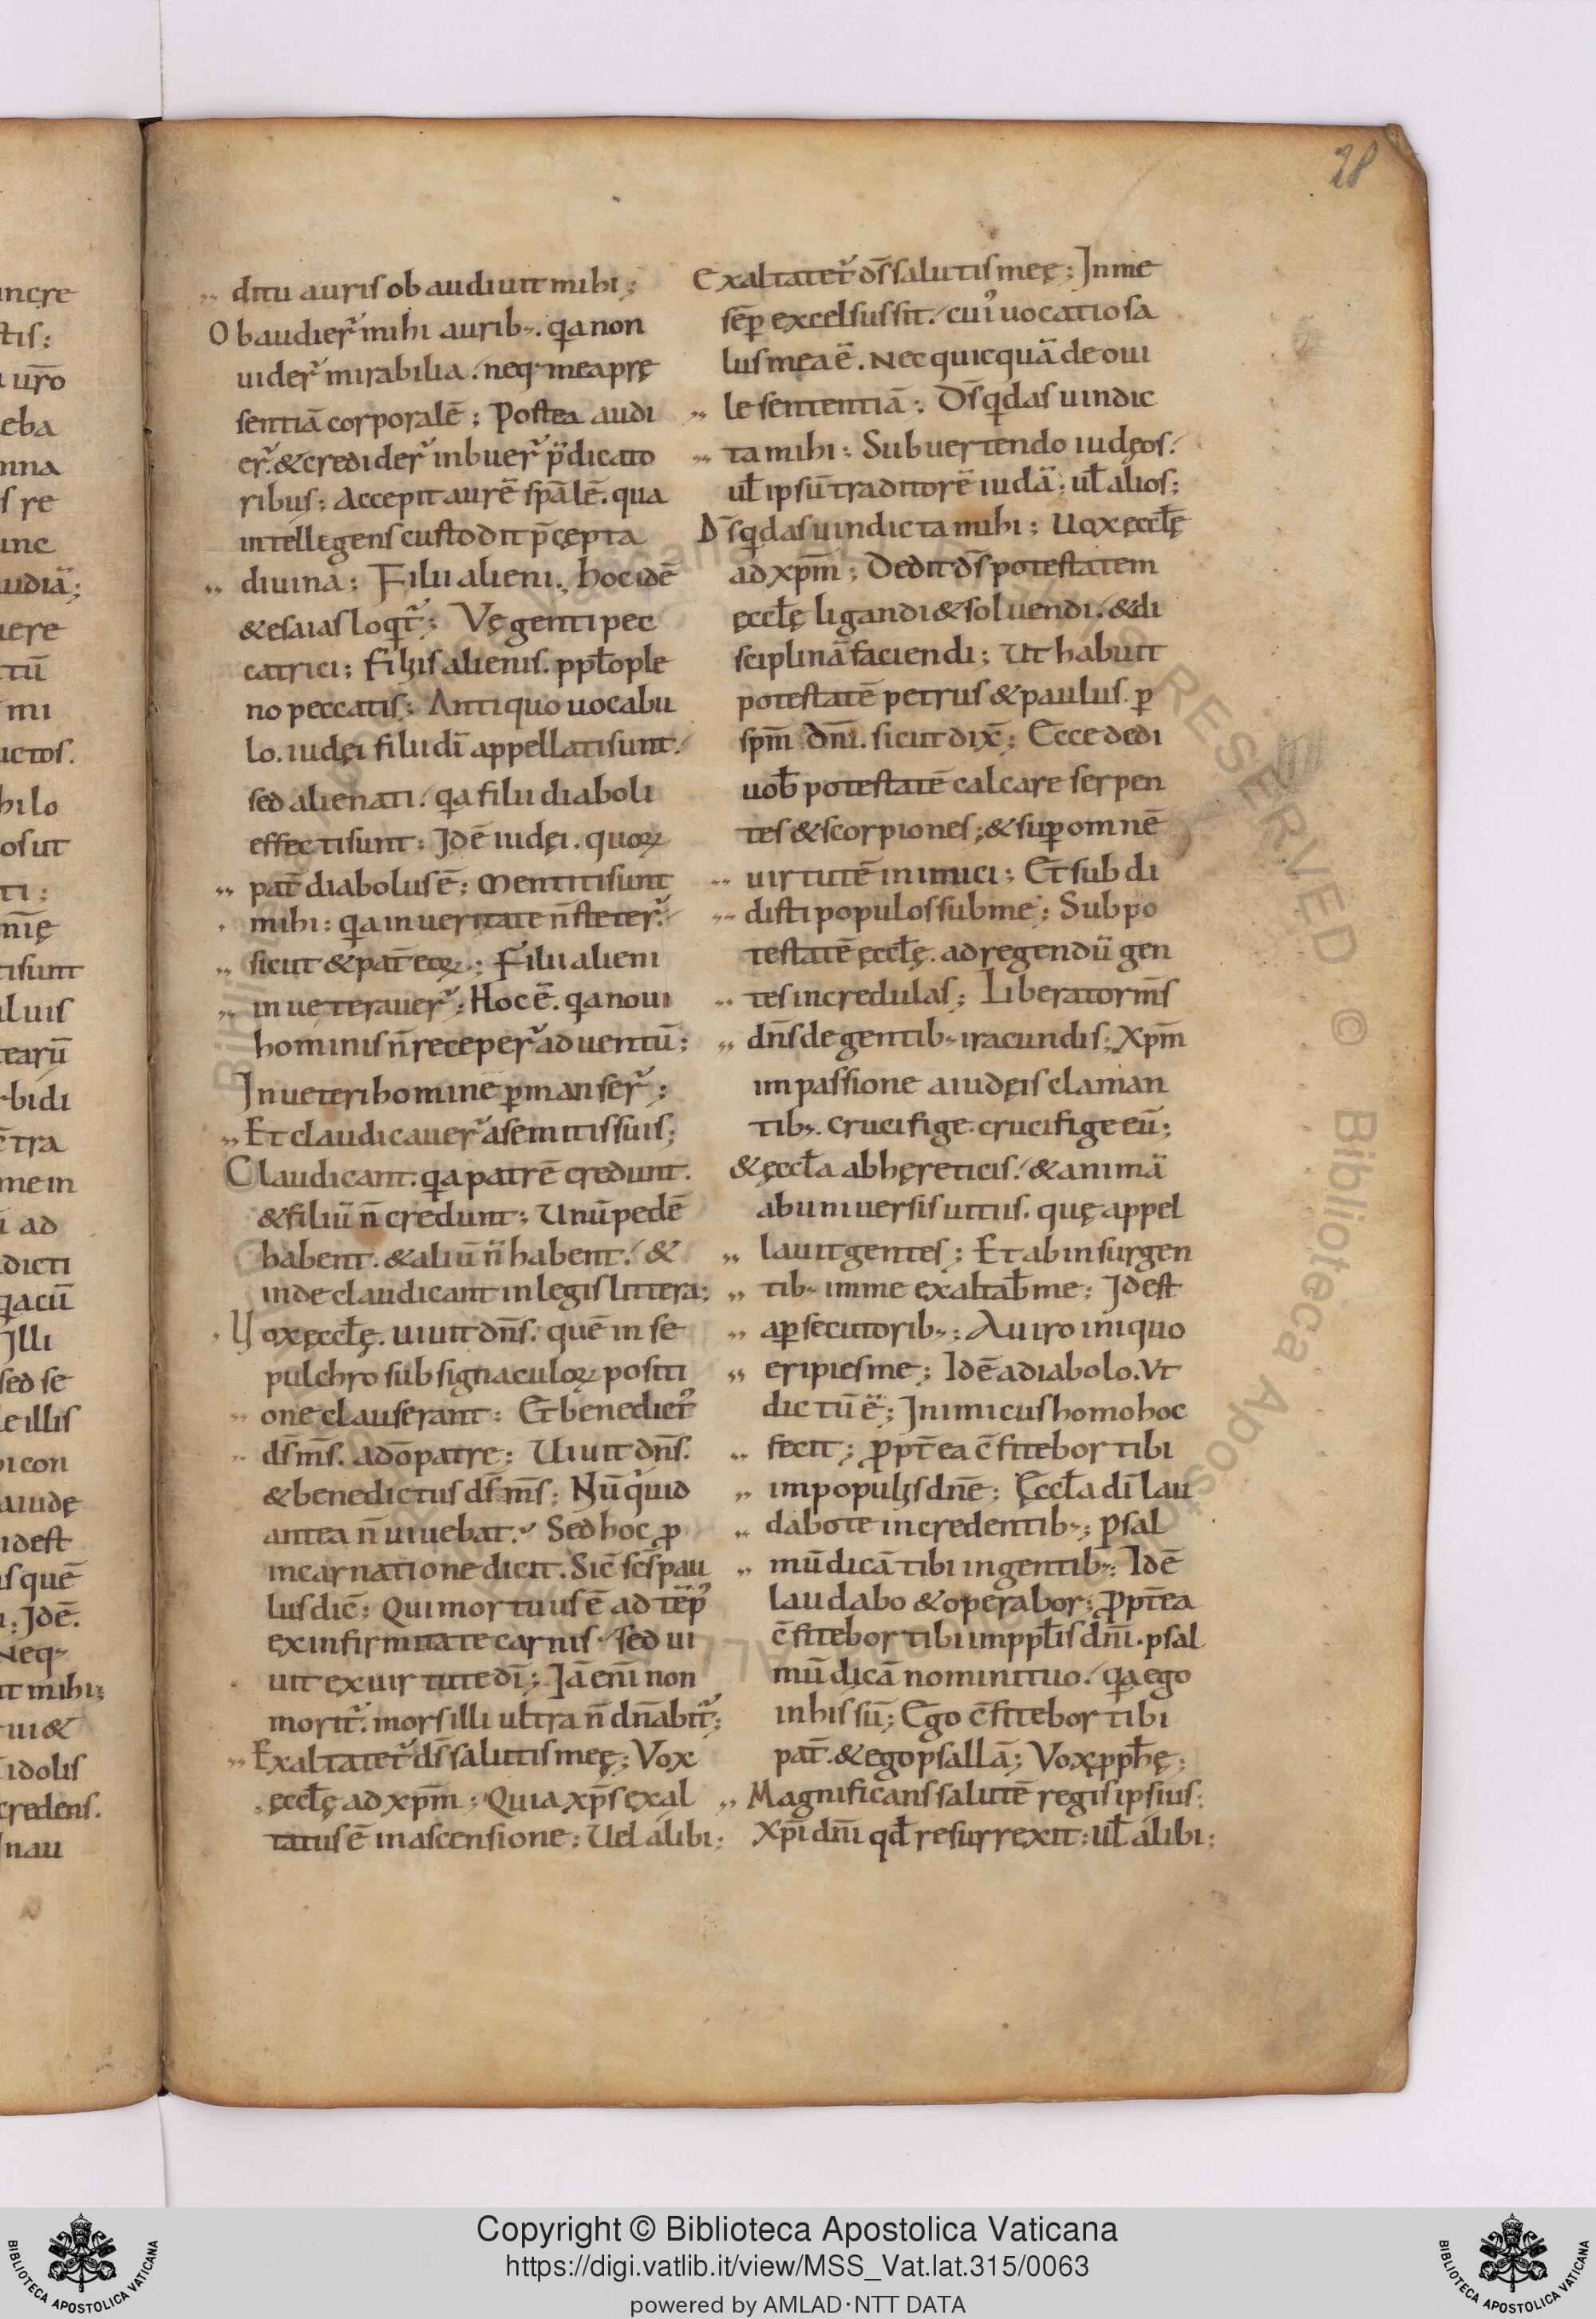 28
ditu auris obaudiuit mihi;
Obaudier̃ mihi aurib;. q̃a non
uider̃ mirabilia. neq; mea prę
sentiā corporalē; Postea audi
er̃. & credider̃ in buer̃ p̃dicato
ribus; Accepit aurē sp̄alē. qua
intellegens custodit p̄cepta
diuina; Filii alieni; hoc idē
& esaias loqt̃; Vę genti pec
catrici; filiis alienis. pplo ple
no peccatis; Antiquo uocabu
lo. iudęi filii dī appellati sunt.
sed alienati. q̃a filii diaboli
effecti sunt; Idē iudęi. quoꝝ
pat̄ diabolus ē; Mentiti sunt
mihi; q̃a in ueritate n̄ steter̃.
sicut & pat̄ eoꝝ; Filii alieni
inueterauer̃; Hoc ē. q̃a noui
hominis n̄ receper̃ aduentū;
In ueteri homine ꝑmanser̃;
Et claudicauer̃ a semitis suis;
Claudicant. q̃a patrē credunt.
& filiū n̄ credunt; Unū pedē
habent. & aliū n̄ habent. &
inde claudicant in legis littera;
Uox ęccłę. uiuit dn̄s. quē in se
pulchro sub signaculoꝝ positi
one clauserant; Et benedict᾽
ds̄ ms̄. a dō patre; Uiuit dn̄s.
& benedictus ds̄ ms̄; Nūquid
antea n̄ uiuebat. Sed hoc ꝓ
incarnatione dicit. Sic̄ sc̄s pau
lus dic̄; Qui mortuus ē ad tēp᾽
ex infirmitate carnis. sed ui
uit ex uirtute dī; Iā enī non
morit̃. mors illi ultra n̄ dn̄abit̃;
Exaltatet̃ ds̄ salutis meę; Vox
ęccłę ad xpm̄; Quia xps̄ exal
tatus ē in ascensione; Uel alibi;
Exaltatet̃ ds̄ salutis meę; In me
sēꝑ excelsus sit. cui᾽ uocatio sa
lus mea ē. Nec quicquā de oui
le sententiā; Ds̄ qui das uindic
ta mihi; Subuertendo iudęos.
uł ipsū traditorē iudā; uł alios;
Ds̄ qui das uindicta mihi; Uox ęccłę
ad xpm̄; Dedit ds̄ potestatem
ęccłę ligandi & soluendi. & di
sciplinā faciendi; Ut habuit
potestatē petrus & paulus. ꝑ
spm̄ dn̄i. sicut dix̄; Ecce dedi
uob̄ potestatē calcare serpen
tes & scorpiones; & suꝑ omnē
uirtutē inimici; Et subdi
disti populos sub me; Sub po
testatē ęccłę. ad regendū gen
tes incredulas; Liberator ms̄
dn̄s de gentib; iracundis; Xpm̄
in passione a iudęis claman
tib;. crucifige. crucifige eū;
& ęccła ab hęreticis. & animā
ab uniuersis uitiis. quę appel
lauit gentes; Et ab insurgen
tib; in me exaltab̄ me; Id est
a ꝑsecutorib;; A uiro iniquo
eripies me; Idē a diabolo. Vt
dictū ē; Inimicus homo hoc
fecit; Propt̄ea c̄fitebor tibi
in populis dn̄e; Ęccła dī lau
dabo te in credentib;; Psal
mū dicā tibi in gentib;; Idē
laudabo & operabor; Propt̄ea
c̄fitebor tibi in pplis dn̄i. psal
mū dicā nomini tuo. q̃a ego
in his sū; Ego c̄fitebor tibi
pat̄. & ego psallā; Vox pphę;
Magnificans salutē regis ipsius;
Xpi dn̄i qđ resurrexit; Uł alibi;
Copyright © Biblioteca Apostolica Vaticana
https://digi.vatlib.it/view/MSS_Vat.lat.315/0063
powered by AMLAD·NTT DATA
BIBLIOTECA APOSTOLICA VATICANA
BIBLIOTECA APOSTOLICA VATICANA